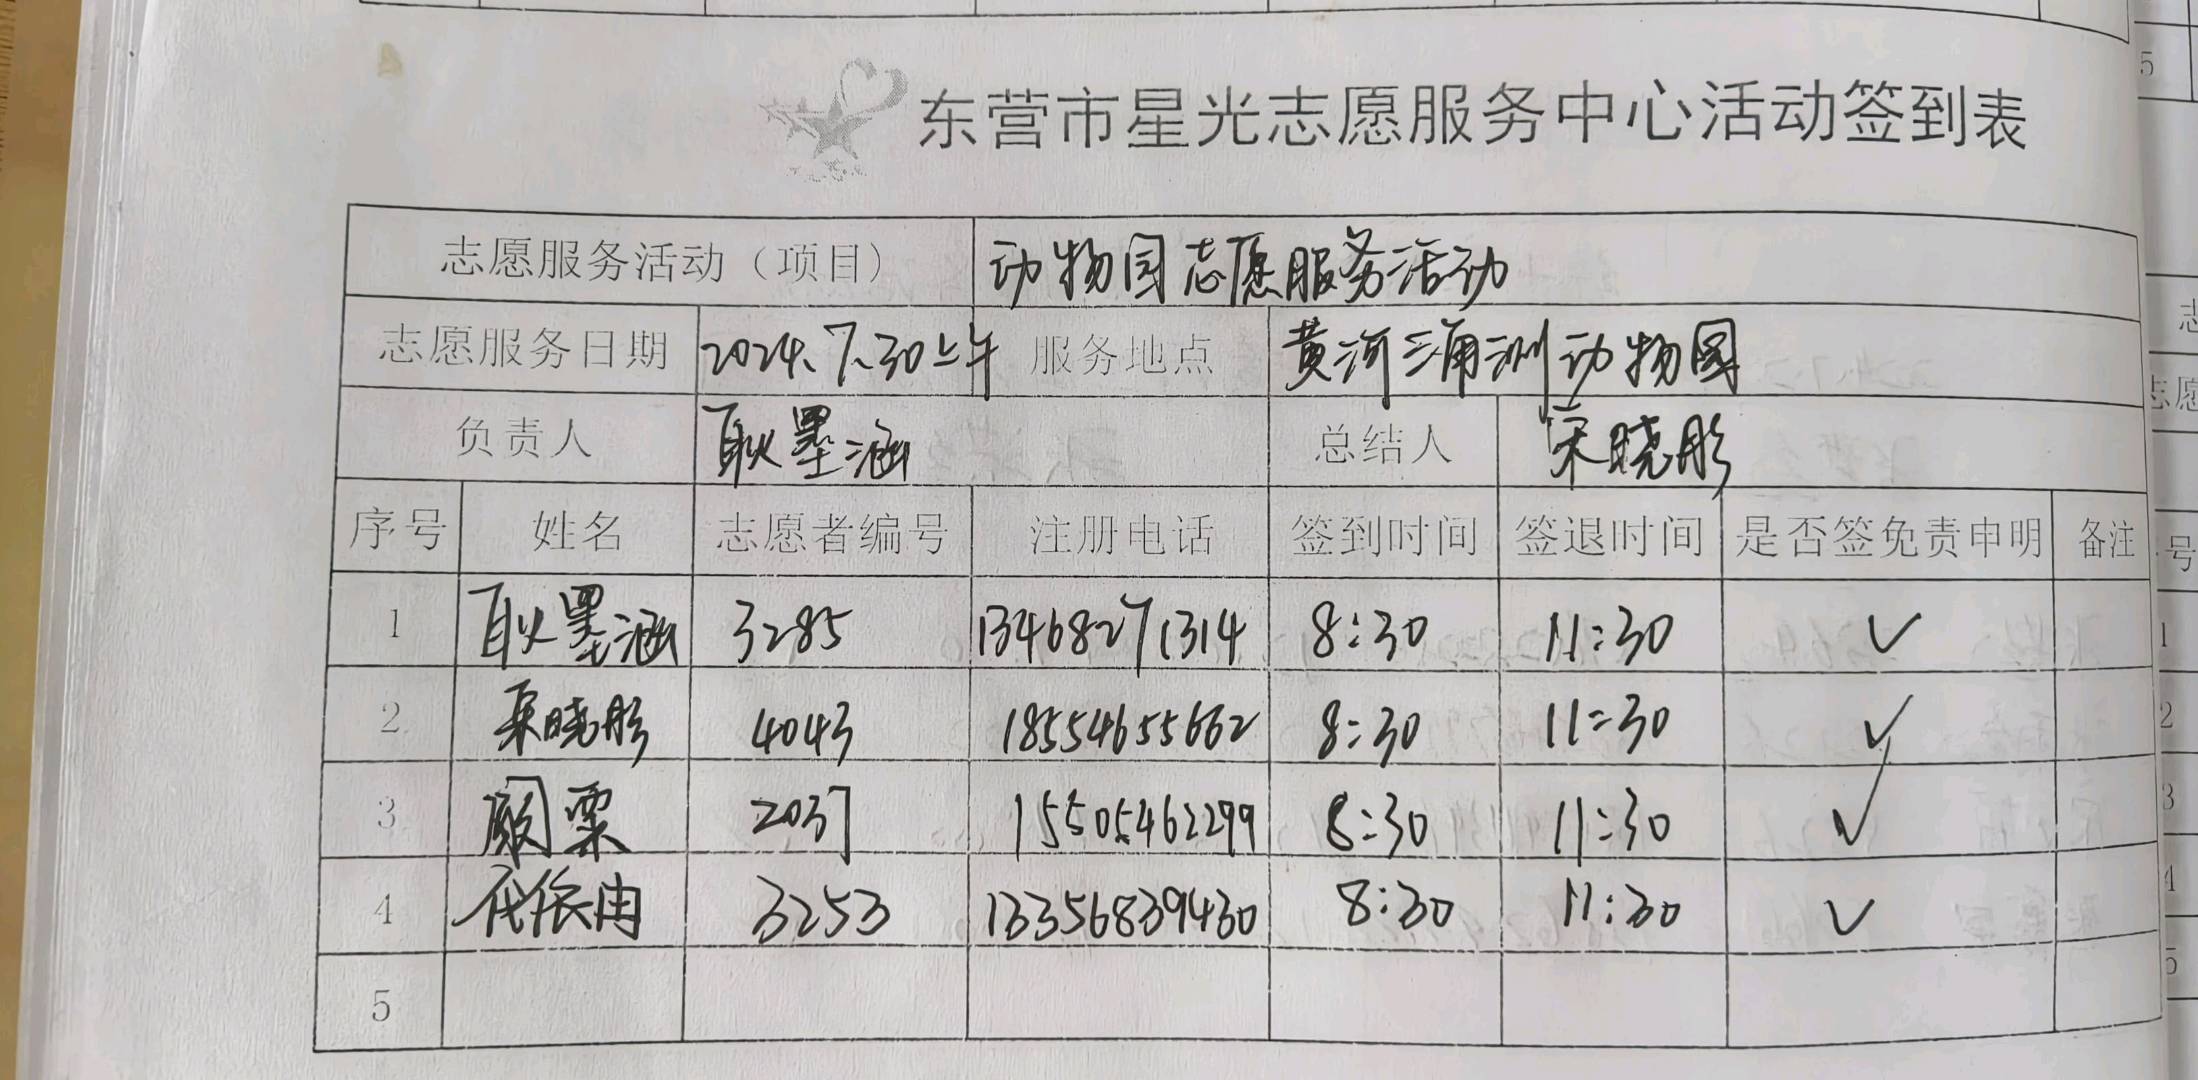 东营市星光志愿服务中心活动签到表
志愿服务活动（项目） 动物园志愿服务活动
志愿服务日期 2024.7.30上午 服务地点 黄河三角洲动物园
负责人 耿墨涵 总结人 宋晓彤
序号 姓名 志愿者编号 注册电话 签到时间 签退时间 是否签免责申明 备注
1 耿墨涵 3285 13468271314 8:30 11:30 ✓
2 宋晓彤 4043 18554655662 8:30 11:30 ✓
3 2037 15505462299 8:30 11:30 ✓
4 3253 13356839430 8:30 11:30 ✓
5